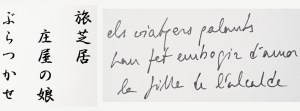 旅芝居
庄屋の娘
ぶらつかせ
els viatgers galants
han fet embogir d'amor
la filla de l'alcalde